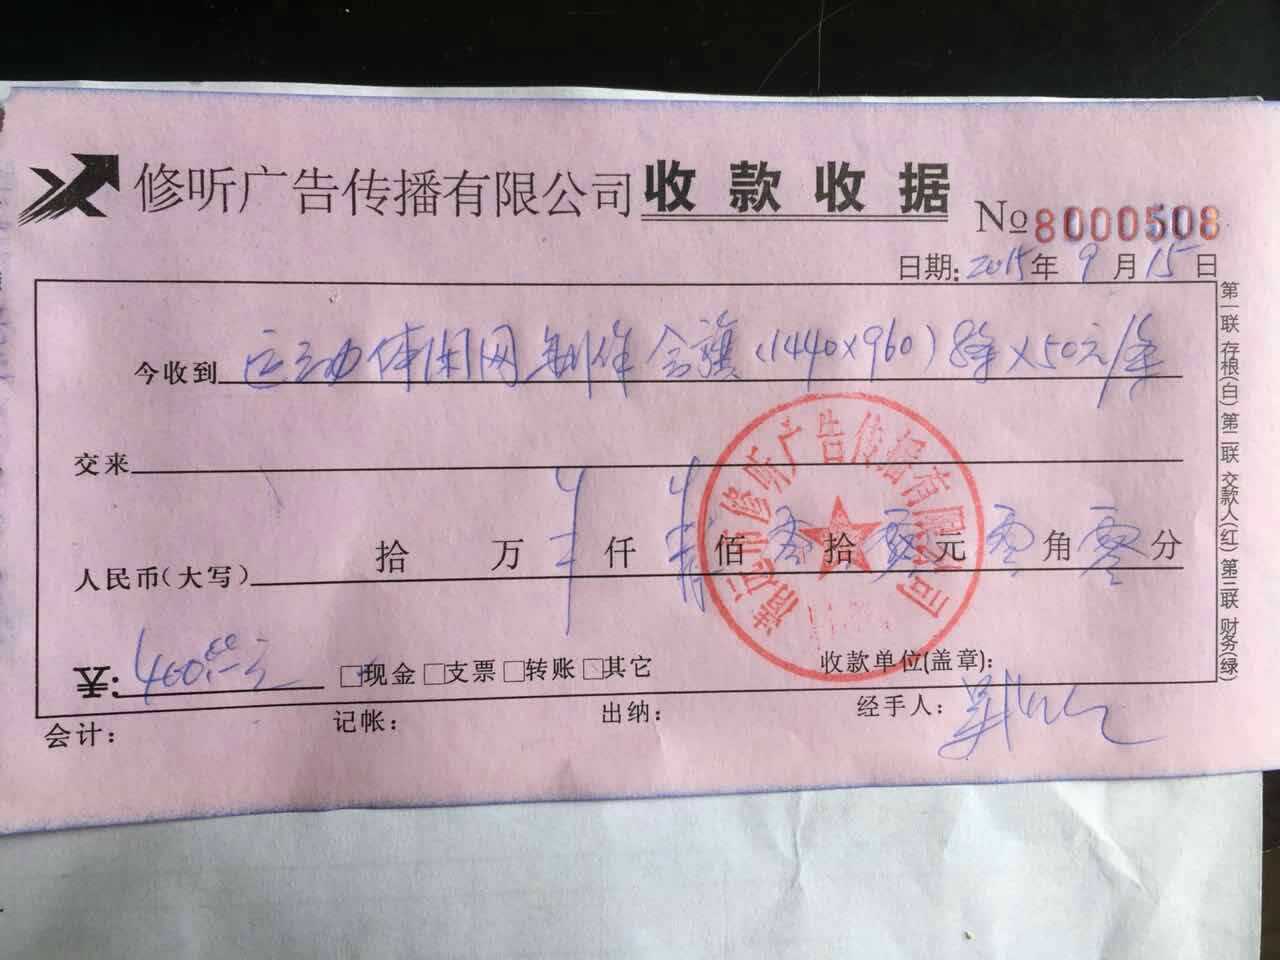 修听广告传播有限公司 收款收据 №8000508
日期:2015年9月15日
今收到 运动休闲网制作会旗(1440×960)8条×50元/条
交来
人民币(大写) 拾 万 仟 肆佰零拾零元零角零分
¥:400.00元 □现金□支票□转账□其它 收款单位(盖章):
会计: 记帐: 出纳: 经手人:
第一联 存根(白) 第二联 交款人(红) 第三联 财务(绿)
清远市修听广告传播有限公司